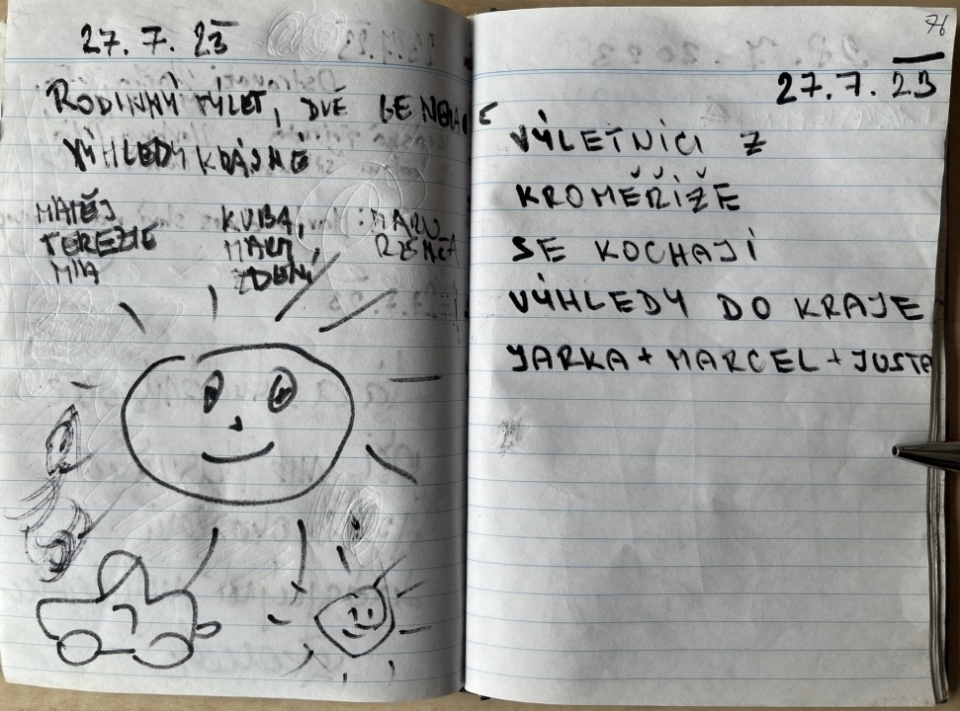 27. 7. 23
RODINNÝ VÝLET, DVĚ GENERACE
VÝHLEDY KRÁSNÉ
MATĚJ KUBA,
TEREZIE
MIA
76
27.7.23
VÝLETNÍCI Z
KROMĚŘÍŽE
SE KOCHAJÍ
VÝHLEDY DO KRAJE
JARKA + MARCEL + JUSTA